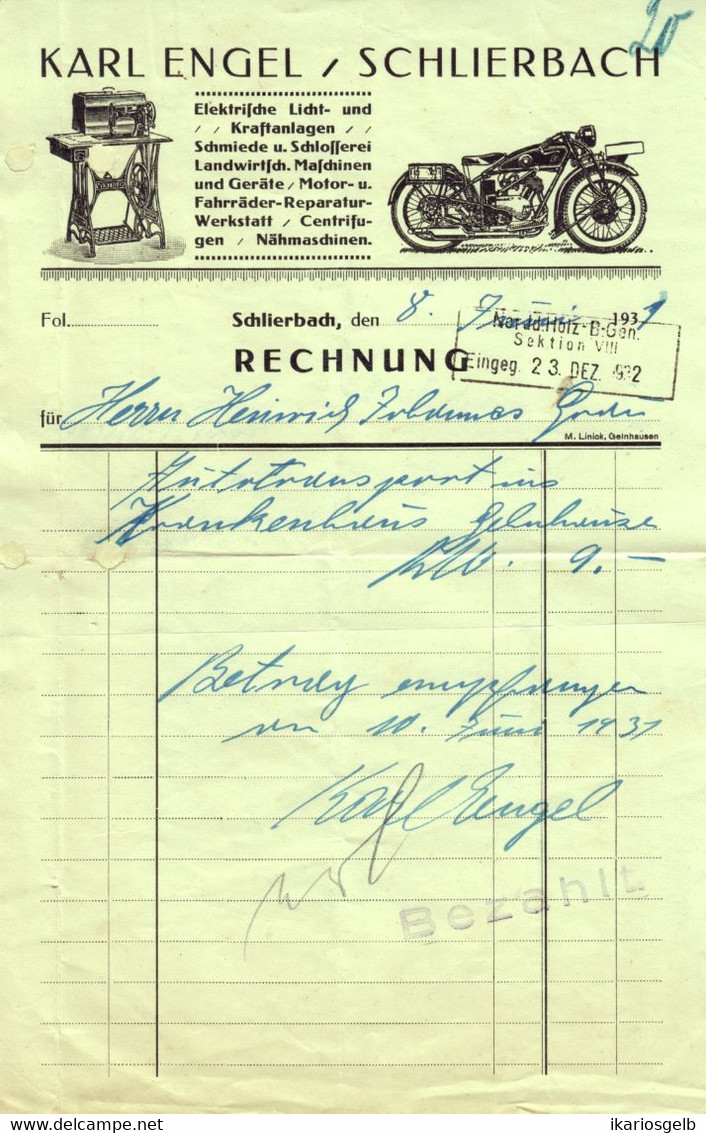 20
KARL ENGEL / SCHLIERBACH
Elektriſche Licht- und
/ / Kraftanlagen / /
Schmiede u. Schloſſerei
Landwirtſch. Maſchinen
und Geräte / Motor- u.
Fahrräder-Reparatur-
Werkstatt / Centrifu-
gen / Nähmaschinen.
Fol. Schlierbach, den 8. Juni 1931
Nordd. Holz-B-Gen.
Sektion VIII
Eingeg. 23. DEZ. 1932
RECHNUNG
für Herrn Heinrich
M. Linick, Gelnhausen
Autotransport ins
Krankenhaus Gelnhause
RM. 9.–
Betrag empfangen
am 10. Juni 1931
Karl Engel
Bezahlt.
DELCAMPE.NET
ikariosgelb